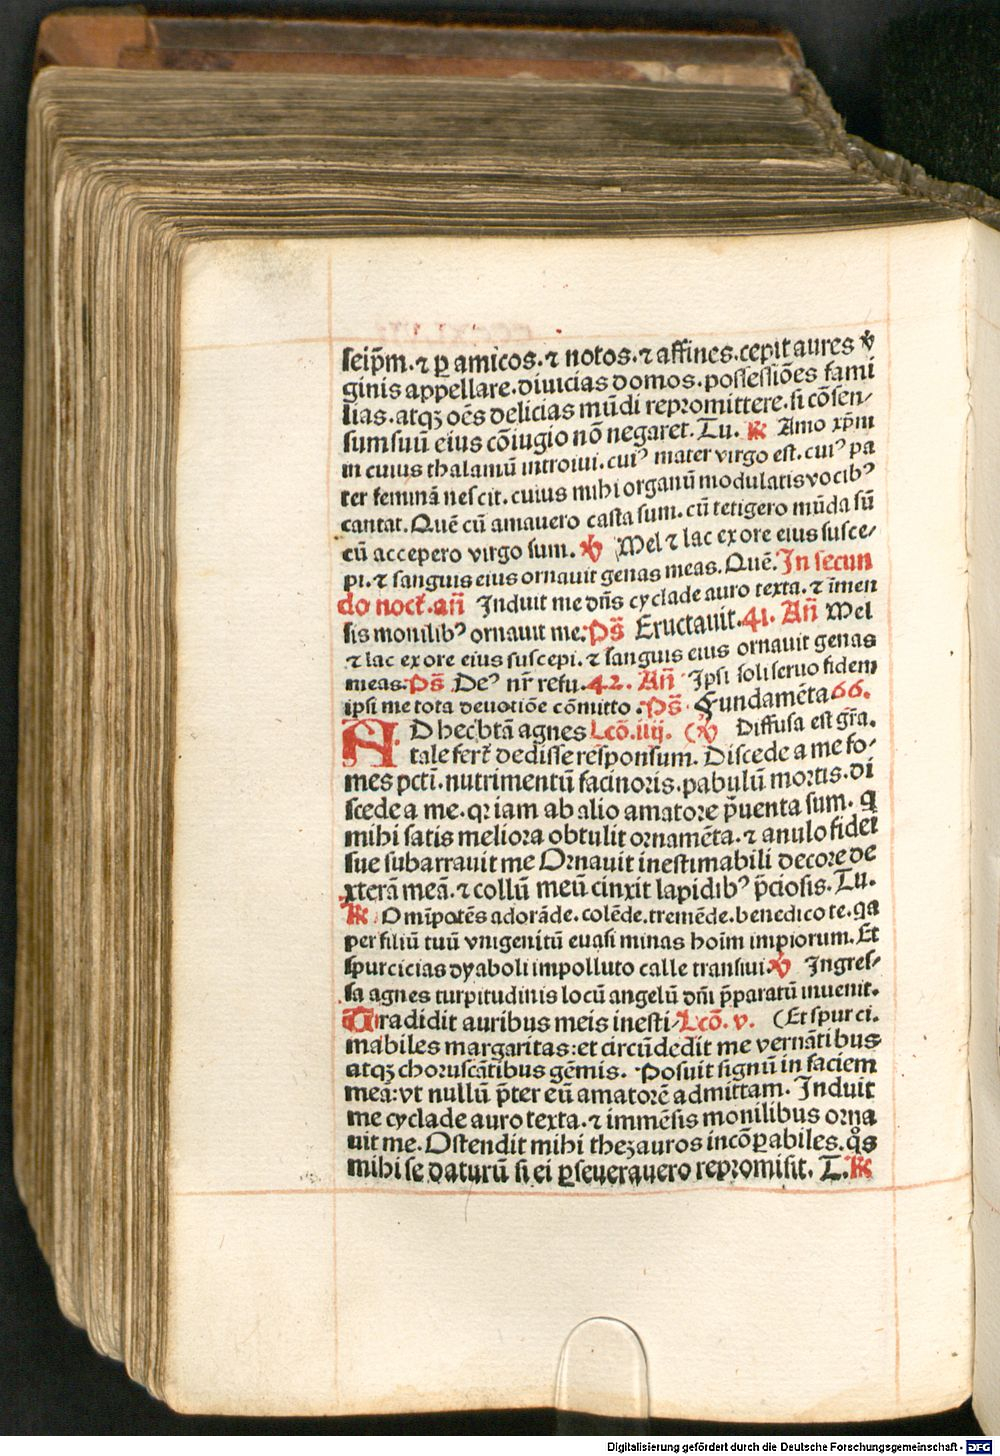 seip̄m.⁊ ꝑ amicos.⁊ notos.⁊ affines.cepit aures v̾
ginis appellare.diuicias domos.possessiōes fami
lias.atqꝫ oēs delicias mūdi repromittere.si cōsen⸗
sum suū eius cōiugio nō negaret.Tu. ℟ Amo xp̄m
in cuius thalamū introiui.cuiꝰ mater virgo est.cuiꝰ pa
ter feminā nescit.cuius mihi organū modulatis vocibꝰ
cantat.Quē cū amauero casta sum.cū tetigero mūda sū
cū accepero virgo sum. ℣ Mel ⁊ lac ex ore eius susce⸗
pi.⁊ sanguis eius ornauit genas meas.Quē.In secun
do noct̄.an̄ Induit me dn̄s cyclade auro texta.⁊ īmen
sis monilibꝰ ornauit me.Ps̄ Eructauit.41. An̄ Mel
⁊ lac ex ore eius suscepi.⁊ sanguis eius ornauit genas
meas.Ps̄ Deꝰ nr̄ refu.42. An̄ Ipsi soli seruo fidem
ipsi me tota deuotiōe cōmitto.Ps̄ Fundamēta 66.
AD hec btā agnes Lcō.iiij. (℣ Diffusa est gr̄a.
tale fert̄ dedisse responsum. Discede a me fo⸗
mes pcti̅.nutrimentū facinoris.pabulū mortis.di
scede a me.qꝛ iam ab alio amatore p̄uenta sum. q
mihi satis meliora obtulit ornamēta.⁊ anulo fidei
sue subarrauit me Ornauit inestimabili decore de
xterā meā.⁊ collū meū cinxit lapidibꝰ p̄ciosis.Tu.
℟ Omīpotēs adorāde.colēde.tremēde.benedico te.qa
per filiū tuū vnigenitū euasi minas hoīm impiorum.Et
spurcicias dyaboli impolluto calle transiui.℣ Ingres⸗
sa agnes turpitudinis locū angelū dn̄i p̄paratū inuenit.
Tradidit auribus meis inesti⸗Lcō.v. (Et spurci.
mabiles margaritas:et circūdedit me vernātibus
atqꝫ choruscātibus gēmis. Posuit signū in faciem
meā:vt nullū p̄ter eū amatorē admittam. Induit
me cyclade auro texta.⁊ immēsis monilibus orna
uit me.Ostendit mihi thezauros incōꝑabiles.qͦs
mihi se daturū si ei ꝑseuerauero repromisit. T.℟
Digitalisierung gefördert durch die Deutsche Forschungsgemeinschaft - DFG